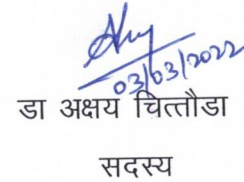 03/03/2022
डा अक्षय चित्तौडा
सदस्य